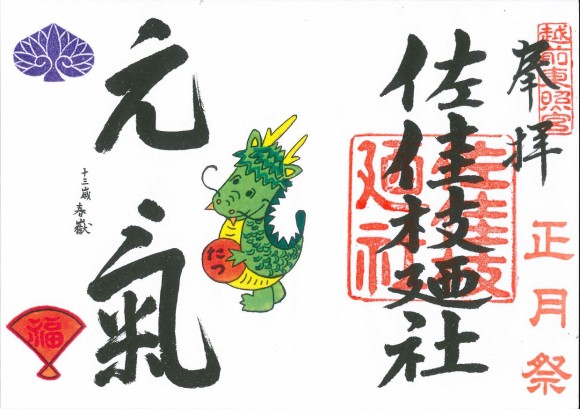 越前東照宮
奉拝
正月祭
佐佳枝廼社
佐佳枝
廼社
元氣
たつ
十三歳 春嶽
福